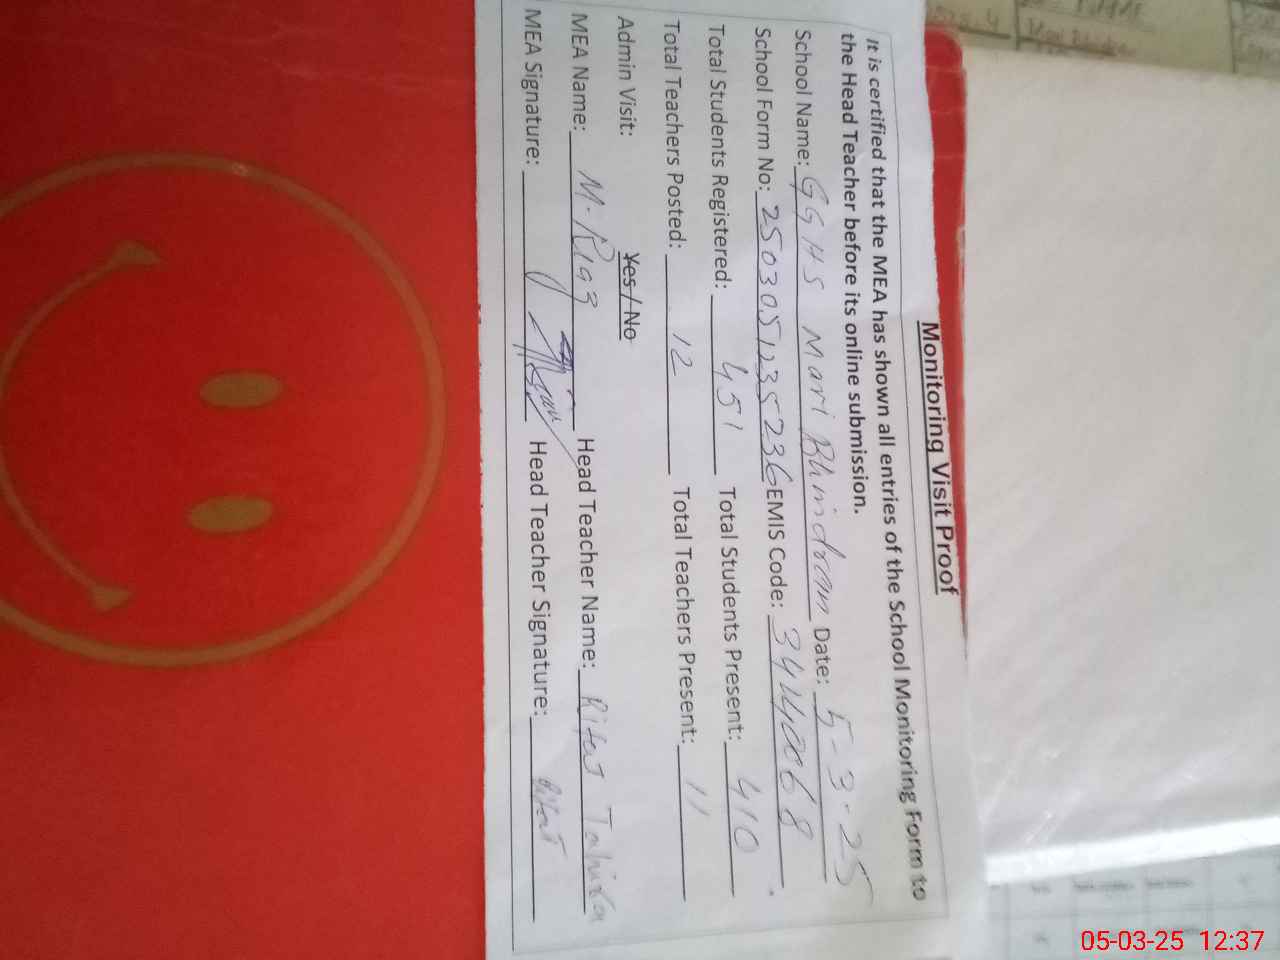 Monitoring Visit Proof
It is certified that the MEA has shown all entries of the School Monitoring Form to
the Head Teacher before its online submission.
School Name: GGHS Mari Bhindran Date: 5-3-25
School Form No: 2503051235236 EMIS Code: 34440068
Total Students Registered: 451 Total Students Present: 410
Total Teachers Posted: 12 Total Teachers Present: 11
Admin Visit: Yes / No
MEA Name: M. Riaz Head Teacher Name: Rifat Tahira
MEA Signature: Head Teacher Signature: Rifat
05-03-25 12:37